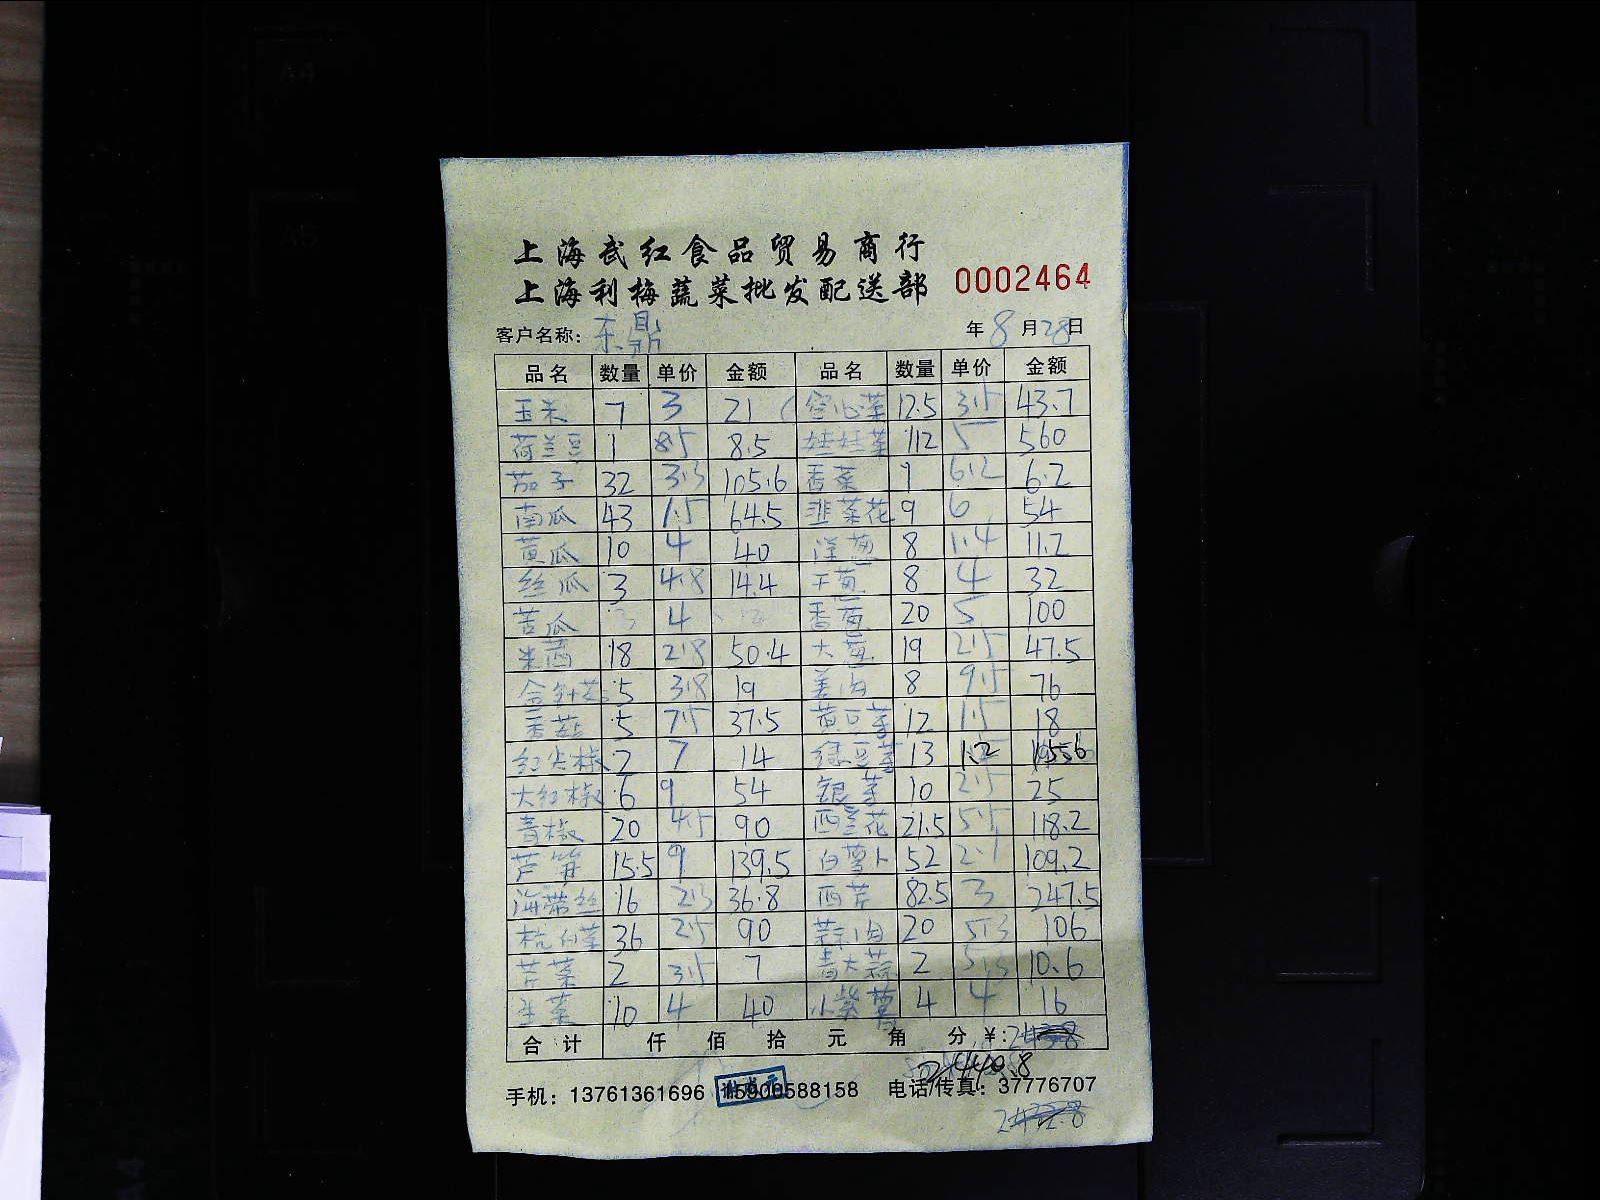 上海武红食品贸易商行
上海利梅蔬菜批发配送部 0002464
客户名称：东鼎 年8月28日
品名 数量 单价 金额 品名 数量 单价 金额
玉米 7 3 21 空心菜 12.5 3.5 43.7
荷兰豆 1 8.5 8.5 娃娃菜 112 5 560
茄子 32 3.3 105.6 香菜 1 6.2 6.2
南瓜 43 1.5 64.5 韭菜花 9 6 54
黄瓜 10 4 40 洋葱 8 1.4 11.2
丝瓜 3 4.8 14.4 干葱 8 4 32
苦瓜 4 香葱 20 5 100
18 2.8 50.4 大葱 19 2.5 47.5
金针菇 5 3.8 19 姜肉 8 9.5 76
香菇 5 7.5 37.5 黄豆芽 12 1.5 18
红尖椒 2 7 14 绿豆芽 13 1.2 15.6
大红椒 6 9 54 银芽 10 2.5 25
青椒 20 4.5 90 西兰花 21.5 5.5 118.2
芦笋 15.5 9 139.5 白萝卜 52 2.1 109.2
海带丝 16 2.3 36.8 西芹 82.5 3 247.5
杭白菜 36 2.5 90 蒜肉 20 5.3 106
芹菜 2 3.5 7 青大蒜 2 5.3 10.6
生菜 10 4 40 小紫薯 4 4 16
合计 仟 佰 拾 元 角 分 ¥:
2440.8
手机：13761361696 15900588158 电话/传真：37776707